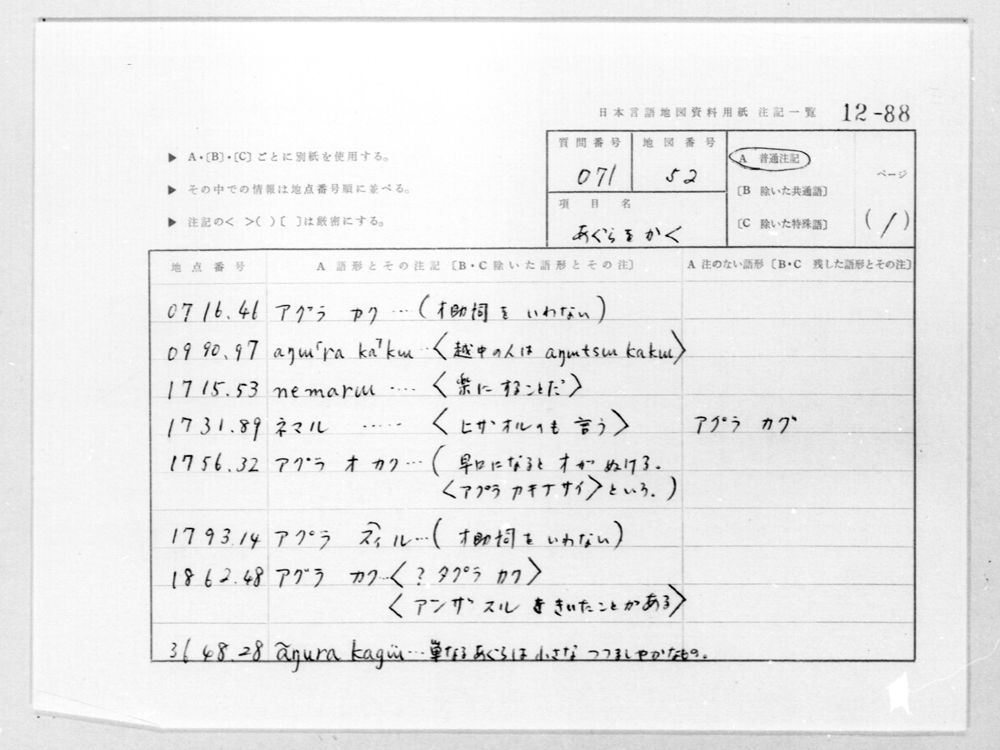 日本言語地図資料用紙 注記一覧 12-88
▶ A・〔B〕・〔C〕ごとに別紙を使用する。
▶ その中での情報は地点番号順に並べる。
▶ 注記の< >( )〔 〕は厳密にする。
質問番号 地図番号
071 52
項目名
あぐらをかく
A 普通注記
〔B 除いた共通語〕
〔C 除いた特殊語〕
ページ
(1)
地点番号 A 語形とその注記〔B・C除いた語形とその注〕 A 注のない語形〔B・C 残した語形とその注〕
0716.46 アグラ カク…(助詞をいわない)
0990.97 aŋɯ⌈ra ka⌉kɯ…〈越中の人は aŋɯtsɯ kakɯ〉
1715.53 nemarɯ ….〈楽にすることだ〉
1731.89 ネマル …..〈ヒザオルとも言う〉 アグラ カグ
1756.32 アグラ オ カク…(早口になるとオがぬける。
〈アグラ カキナサイ〉という。)
1793.14 アグラ イル…(助詞をいわない)
1862.48 アグラ カク…〈? タグラ カク〉
〈アンザ スル をきいたことがある〉
3648.28 ãŋura kagɯ̈…単なるあぐらは小さなつつましやかなもの。